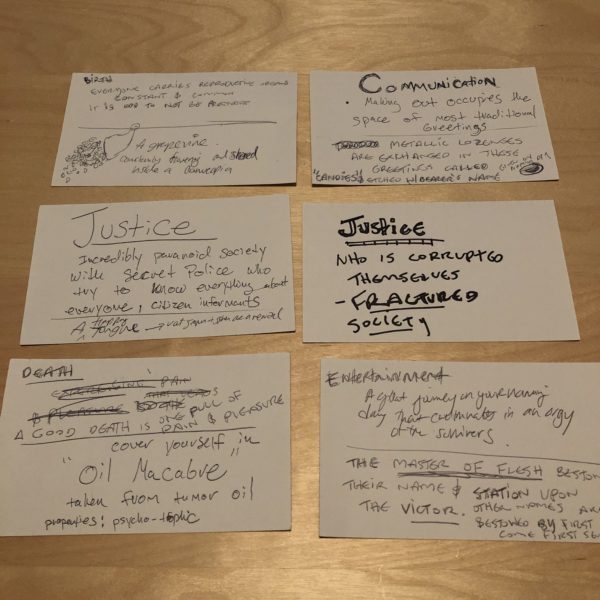 BIRTH
EVERYONE CARRIES REPRODUCTIVE ORGANS
CONSTANT & COMMON
IT IS ODD TO NOT BE PREGNATE
A grapevine
constantly flowering and
inside a cornucopia
COMMUNICATION
Making out occupies the
space of most traditional
Greetings
METALLIC LOZENGES
ARE EXCHANGED IN THESE
GREETINGS CALLED
"CANDIES" ETCHED W/BEARER'S NAME
Justice
Incredibly paranoid society
with Secret Police who
try to know everything about
everyone, citizen informants
A Happy Tongue →
JUSTICE
WHO IS CORRUPTED
THEMSELVES
- FRACTURED
SOCIETY
DEATH
PAIN
& PLEASURE
A GOOD DEATH IS ONE FULL OF PAIN & PLEASURE
cover yourself in
"Oil Macabre"
taken from tumor oil
properties: psycho-trophic
Entertainment
A great journey on your naming
day that culminates in an orgy
of the survivers.
THE MASTER OF FLESH BESTOW
THEIR NAME & STATION UPON
THE VICTOR. OTHER NAMES ARE
BESTOWED BY FIRST
COME FIRST SE